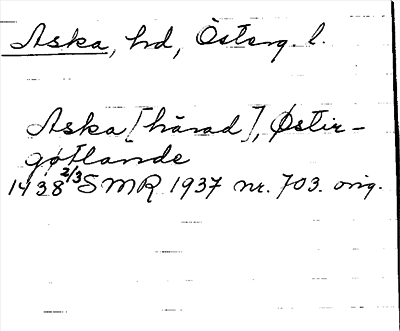 Aska, hd, Österg. l.
Aska [härad], Østir-
gøtlande
1438 2/3 SMR 1937 nr. 703. orig.